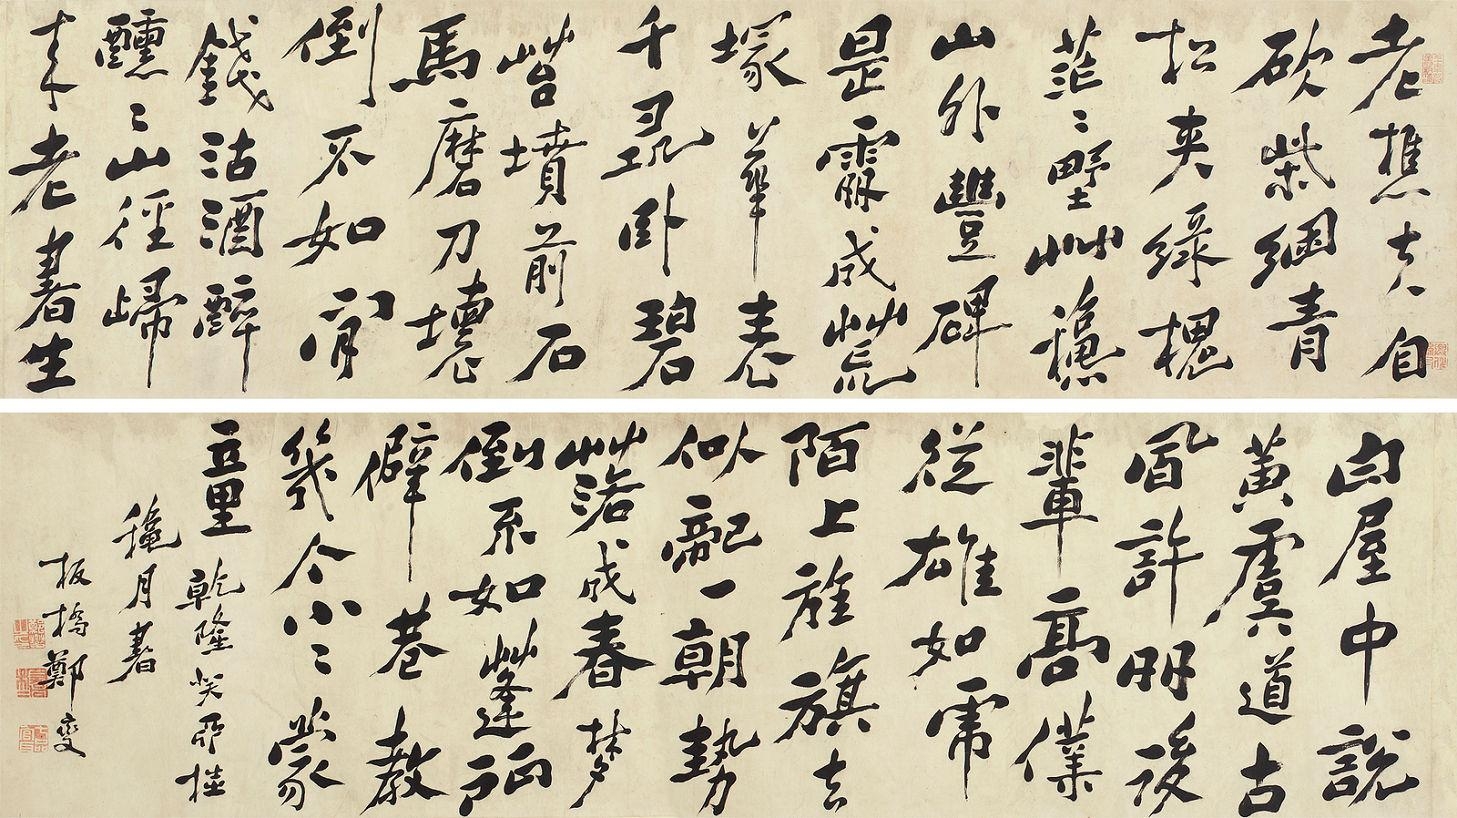 老樵夫自
砍柴綑青
松夾綠槐
茫〻野草穐
山外豐碑
是處成荒
塚華表
千尋臥碧
苔墳前石
馬磨刀壞
倒不如閒
錢沽酒醉
醺〻山徑歸
來老書生
白屋中說
黃虞道古
風許多後
輩高僕
從雄如虎
陌上旌旗去
似龍一朝勢
落成春夢
倒不如蓬門
僻巷教
幾个小〻蒙
童 乾隆癸酉桂
穐月書
板橋鄭燮